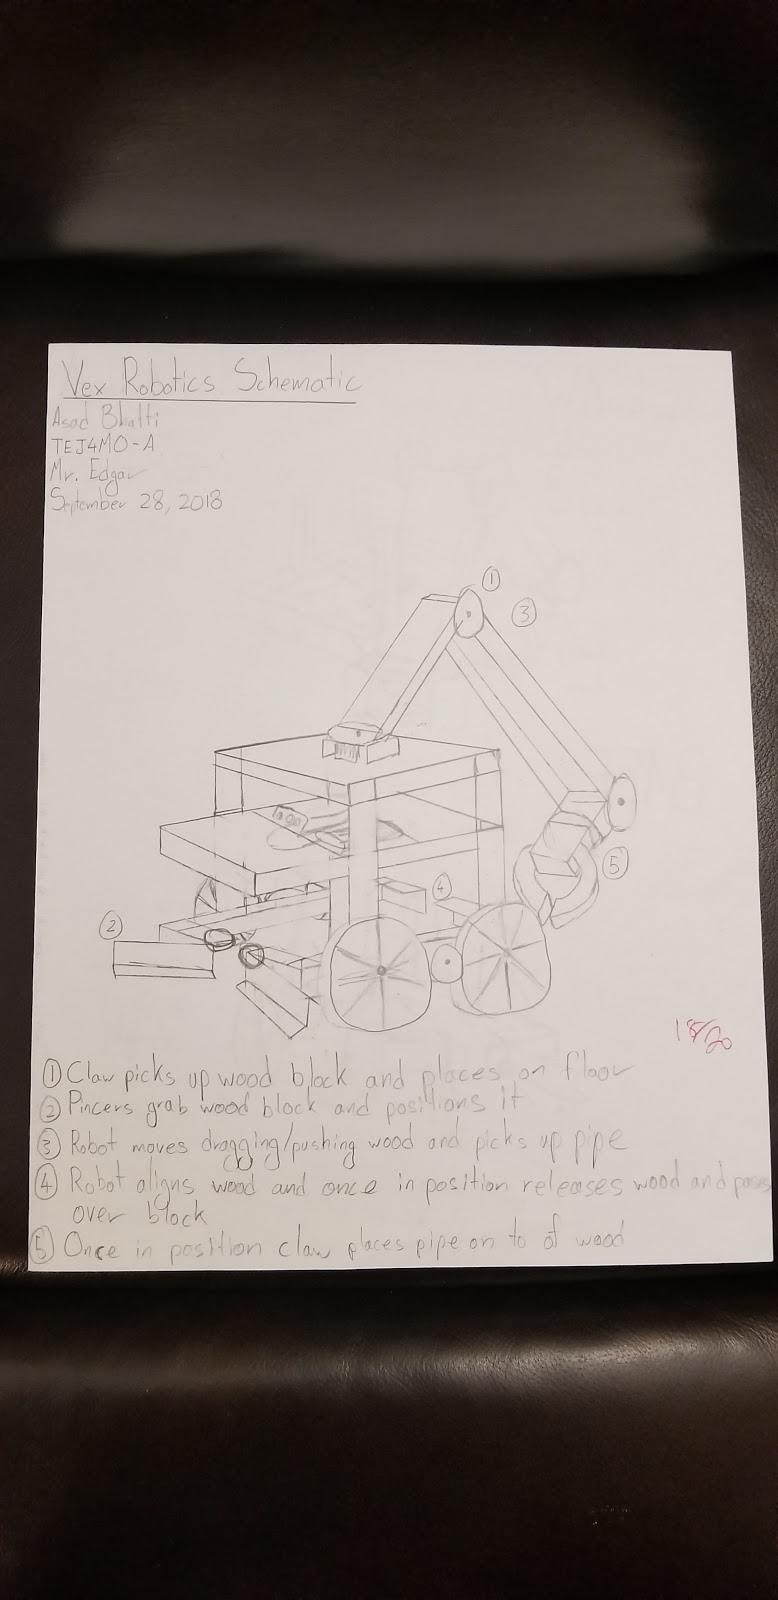 Vex Robotics Schematic
Asad Bhatti
TEJ4MO-A
Mr. Edgar
September 28, 2018
①
③
⑤
④
②
18/20
① Claw picks up wood block and places on floor
② Pincers grab wood block and positions it
③ Robot moves dragging/pushing wood and picks up pipe
④ Robot aligns wood and once in position releases wood and passes
over block
⑤ Once in position claw places pipe on to of wood